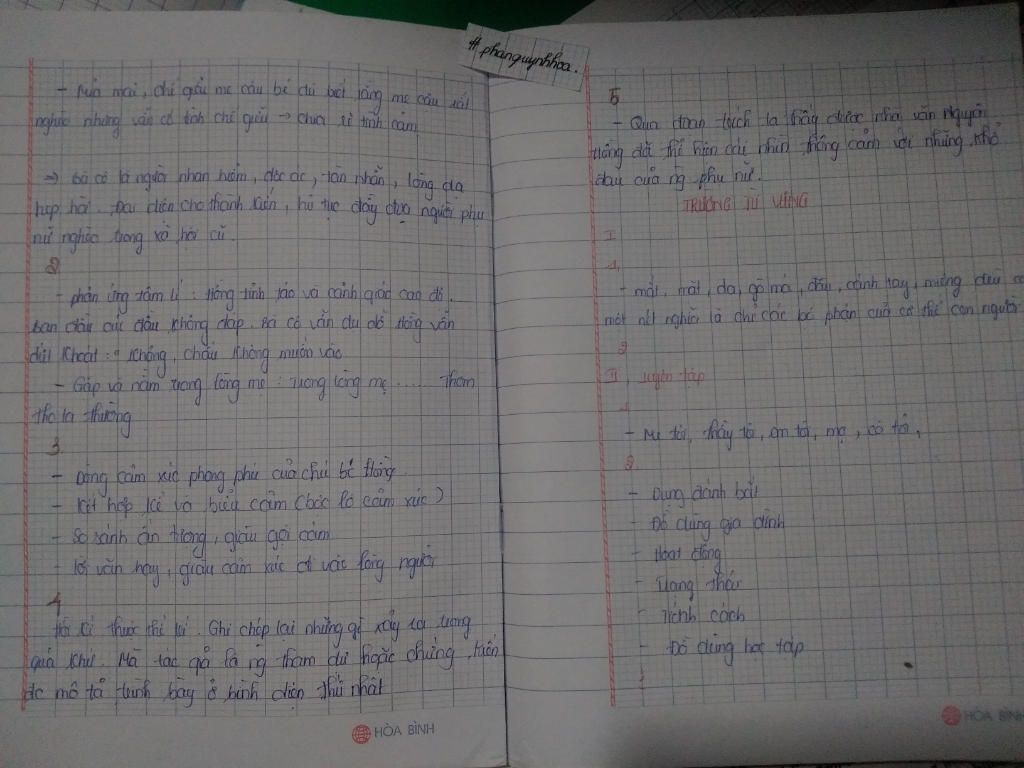 #phanquynhhoa.
mai, chỉ gấu mẹ cậu bé dù biết rằng mẹ cậu rất
nghèo nhưng vẫn cố tình chỉ giễu → chia rẽ tình cảm
⇒ bà cô là người nham hiểm, độc ác, tàn nhẫn, lòng dạ
hẹp hòi. Đại diện cho thành kiến, hủ tục đầy đọa người phụ
nữ nghèo trong xã hội cũ.
2
- phản ứng tâm lí : Hồng tỉnh táo và cảnh giác cao độ.
ban đầu cúi đầu không đáp. Bà cô vẫn dụ dỗ Hồng vẫn
dứt khoát : " Không, cháu không muốn vào
- Gặp và nằm trong lòng mẹ : trong lòng mẹ ..... thơm
tho lạ thường
3.
- Dòng cảm xúc phong phú của chú bé Hồng.
- Kết hợp kể và biểu cảm (bộc lộ cảm xúc)
- So sánh ấn tượng, giàu gợi cảm
- lời văn hay, giàu cảm xúc đi vào lòng người
4
Hồi kí thuộc thể kí. Ghi chép lại những gì xảy ra trong
quá khứ. Mà tác giả là ng tham dự hoặc chứng kiến
đc mô tả trình bày ở bình diện thứ nhất
HÒA BÌNH
5
- Qua đoạn trích ta thấy được nhà văn Nguyên
Hồng đã thể hiện cái nhìn thông cảm với những khổ
đau của ng phụ nữ.
TRƯỜNG TỪ VỰNG
I
1,
- mắt, mặt, da, gò má, đầu, cánh tay, miệng đều có
một nét nghĩa là chỉ các bộ phận của cơ thể con người
2
II, luyện tập
1
- Mẹ tôi, thầy tôi, em tôi, mợ, cô tôi,
2
- Dụng đánh bắt
- Đồ dùng gia đình
- Hoạt động
- Trạng thái
- Tính cách
- Đồ dùng học tập
HÒA BÌNH